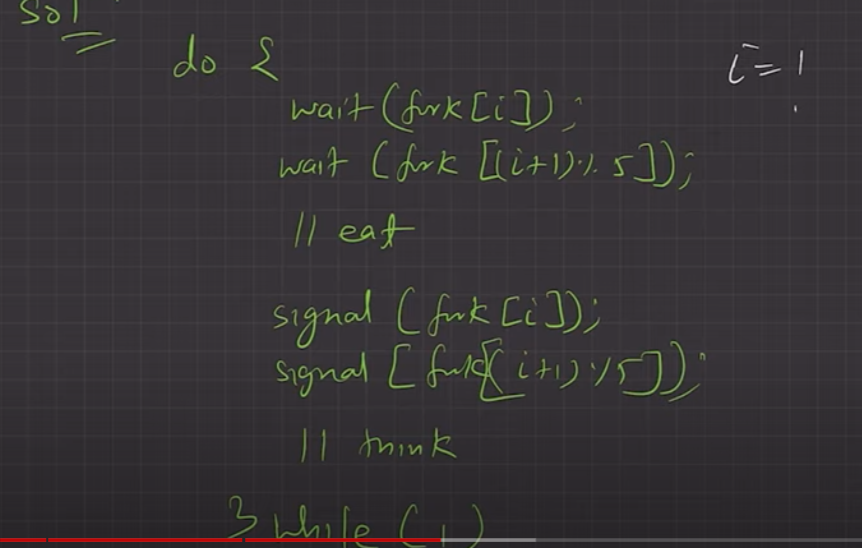 Sol
do {
i = 1
wait (fork [i]);
wait (fork [(i+1) % 5]);
// eat
signal (fork [i]);
signal [ fork[(i+1) % 5]);
// think
} while (1)